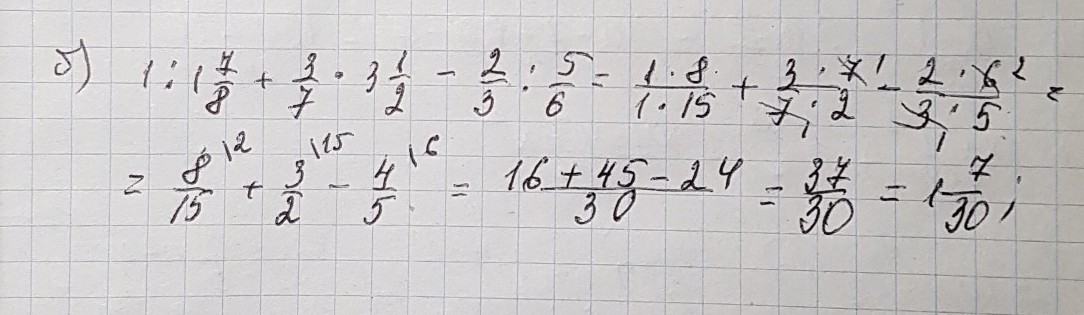 б) 1 : 1 7/8 + 3/7 · 3 1/2 - 2/3 : 5/6 = 1·8/1·15 + 3·7¹/7₁·2 - 2·6²/3₁·5 =
= 8\²/15 + 3\¹⁵/2 - 4\⁶/5 = 16+45-24/30 = 37/30 = 1 7/30;